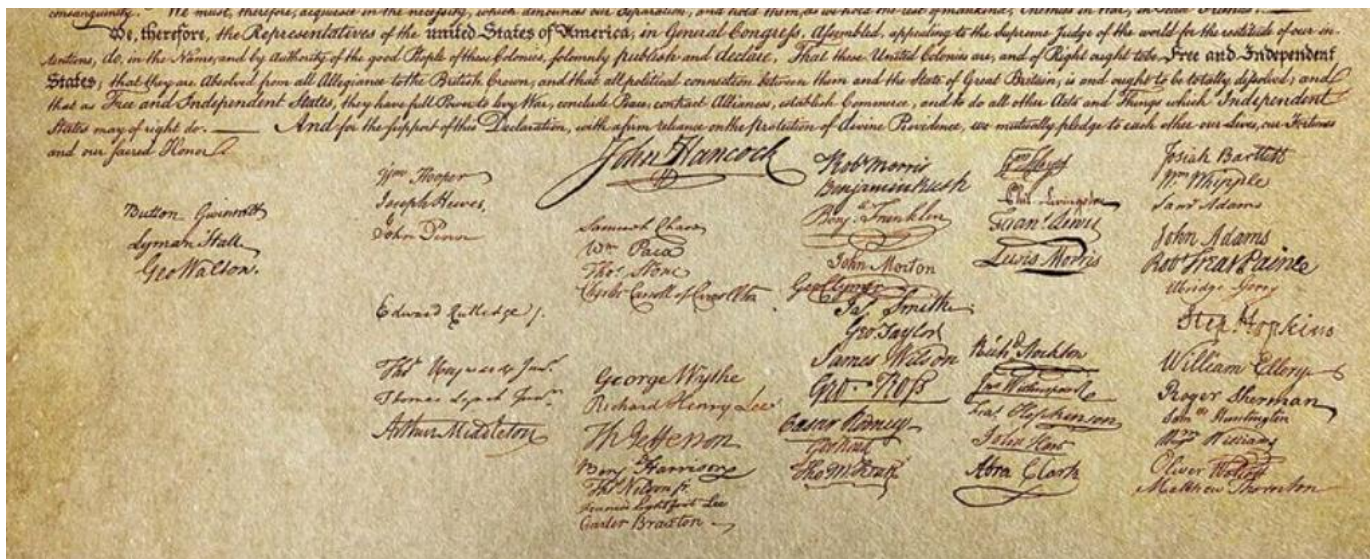 consanguinity. We must, therefore, acquiesce in the necessity, which denounces our Separation, and hold them, as we hold the rest of mankind, Enemies in War, in Peace Friends.
We, therefore, the Representatives of the united States of America, in General Congress, Assembled, appealing to the Supreme Judge of the world for the rectitude of our in-
tentions, do, in the Name, and by Authority of the good People of these Colonies, solemnly publish and declare, That these United Colonies are, and of Right ought to be Free and Independent
States; that they are Absolved from all Allegiance to the British Crown, and that all political connection between them and the State of Great Britain, is and ought to be totally dissolved; and
that as Free and Independent States, they have full Power to levy War, conclude Peace, contract Alliances, establish Commerce, and to do all other Acts and Things which Independent
States may of right do. — And for the support of this Declaration, with a firm reliance on the protection of divine Providence, we mutually pledge to each other our Lives, our Fortunes
and our sacred Honor.
Button Gwinnett
Lyman Hall
Geo Walton.
Wm Hooper
Joseph Hewes,
John Penn
Edward Rutledge
Thos Heyward Junr.
Thomas Lynch Junr.
Arthur Middleton
John Hancock
Samuel Chase
Wm Paca
Thos Stone
Charles Carroll of Carrollton
George Wythe
Richard Henry Lee
Th Jefferson
Benj Harrison
Thos Nelson jr.
Francis Lightfoot Lee
Carter Braxton
Robt Morris
Benjamin Rush
Benj. Franklin
John Morton
Geo Clymer
Jas. Smith
Geo. Taylor
James Wilson
Geo. Ross
Caesar Rodney
Geo Read
Tho M:Kean
Phil. Livingston
Frans. Lewis
Lewis Morris
Richd Stockton
Jno Witherspoon
Fras. Hopkinson
John Hart
Abra Clark
Josiah Bartlett
Wm Whipple
Saml Adams
John Adams
Robt Treat Paine
Elbridge Gerry
Step. Hopkins
William Ellery
Roger Sherman
Saml Huntington
Wm Williams
Oliver Wolcott
Matthew Thornton